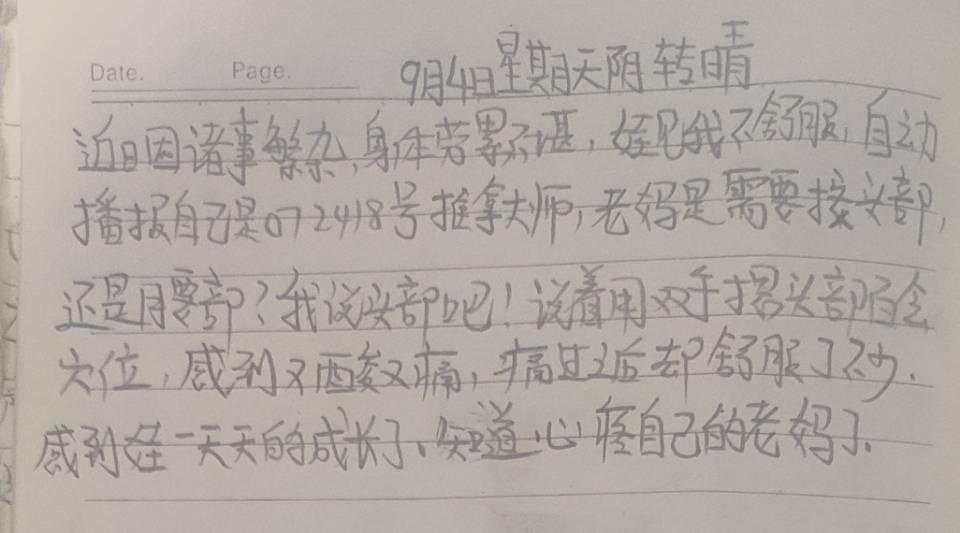 Date. Page. 9月4日星期天阴转晴
近日因诸事繁杂,身体劳累不堪,娃见我不舒服,自动
播报自己是072418号推拿大师,老妈是需要按头部,
还是腰部?我说头部吧!说着用双手摁头部百会
穴位,感到又酸又痛,痛过之后却舒服了不少.
感到娃一天天的成长了、知道心疼自己的老妈了.